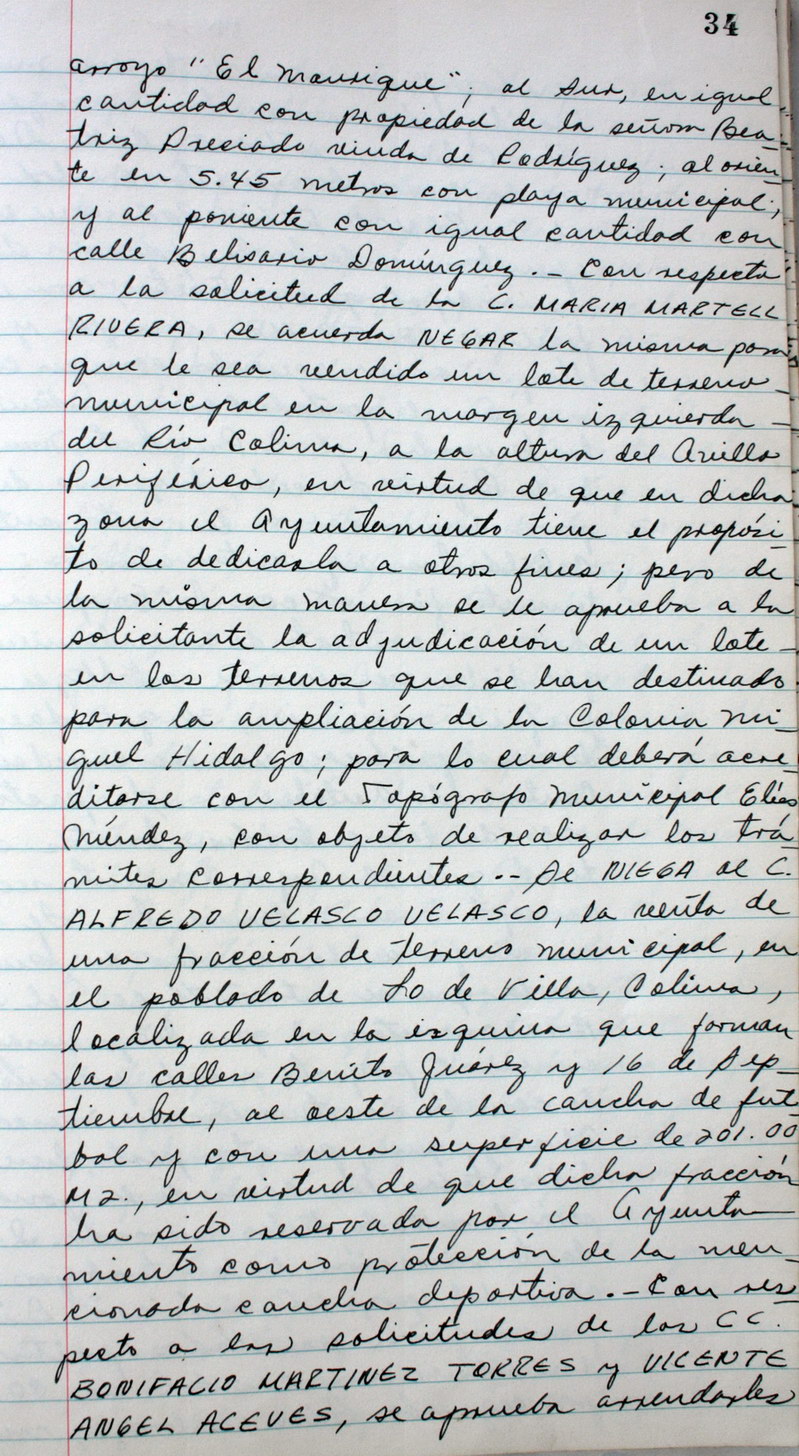 34
arroyo "El Manrique"; al Sur, en igual
cantidad con propiedad de la señora Bea-
triz Preciado viuda de Rodríguez; al orien-
te en 5.45 metros con playa municipal;
y al poniente con igual cantidad con
calle Belisario Domínguez.- Con respecto
a la solicitud de la C. MARIA MARTELL
RIVERA, se acuerda NEGAR la misma para
que le sea vendido un lote de terreno
municipal en la margen izquierda
del Río Colima, a la altura del Anillo
Periférico, en virtud de que en dicha
zona el Ayuntamiento tiene el propósi-
to de dedicarla a otros fines; pero de
la misma manera se le aprueba a la
solicitante la adjudicación de un lote
en los terrenos que se han destinado
para la ampliación de la Colonia Mi-
guel Hidalgo; para lo cual deberá acre-
ditarse con el Topógrafo Municipal Elías
Méndez, con objeto de realizar los trá-
mites correspondientes.- Se NIEGA al C.
ALFREDO VELASCO VELASCO, la venta de
una fracción de terreno municipal, en
el poblado de Lo de Villa, Colima,
localizada en la esquina que forman
las calles Benito Juárez y 16 de Sep-
tiembre, al oeste de la cancha de fut-
bol y con una superficie de 201.00
M2., en virtud de que dicha fracción
ha sido reservada por el Ayunta-
miento como protección de la men-
cionada cancha deportiva.- Con res-
pecto a las solicitudes de los CC.
BONIFACIO MARTINEZ TORRES y VICENTE
ANGEL ACEVES, se aprueba arrendarles